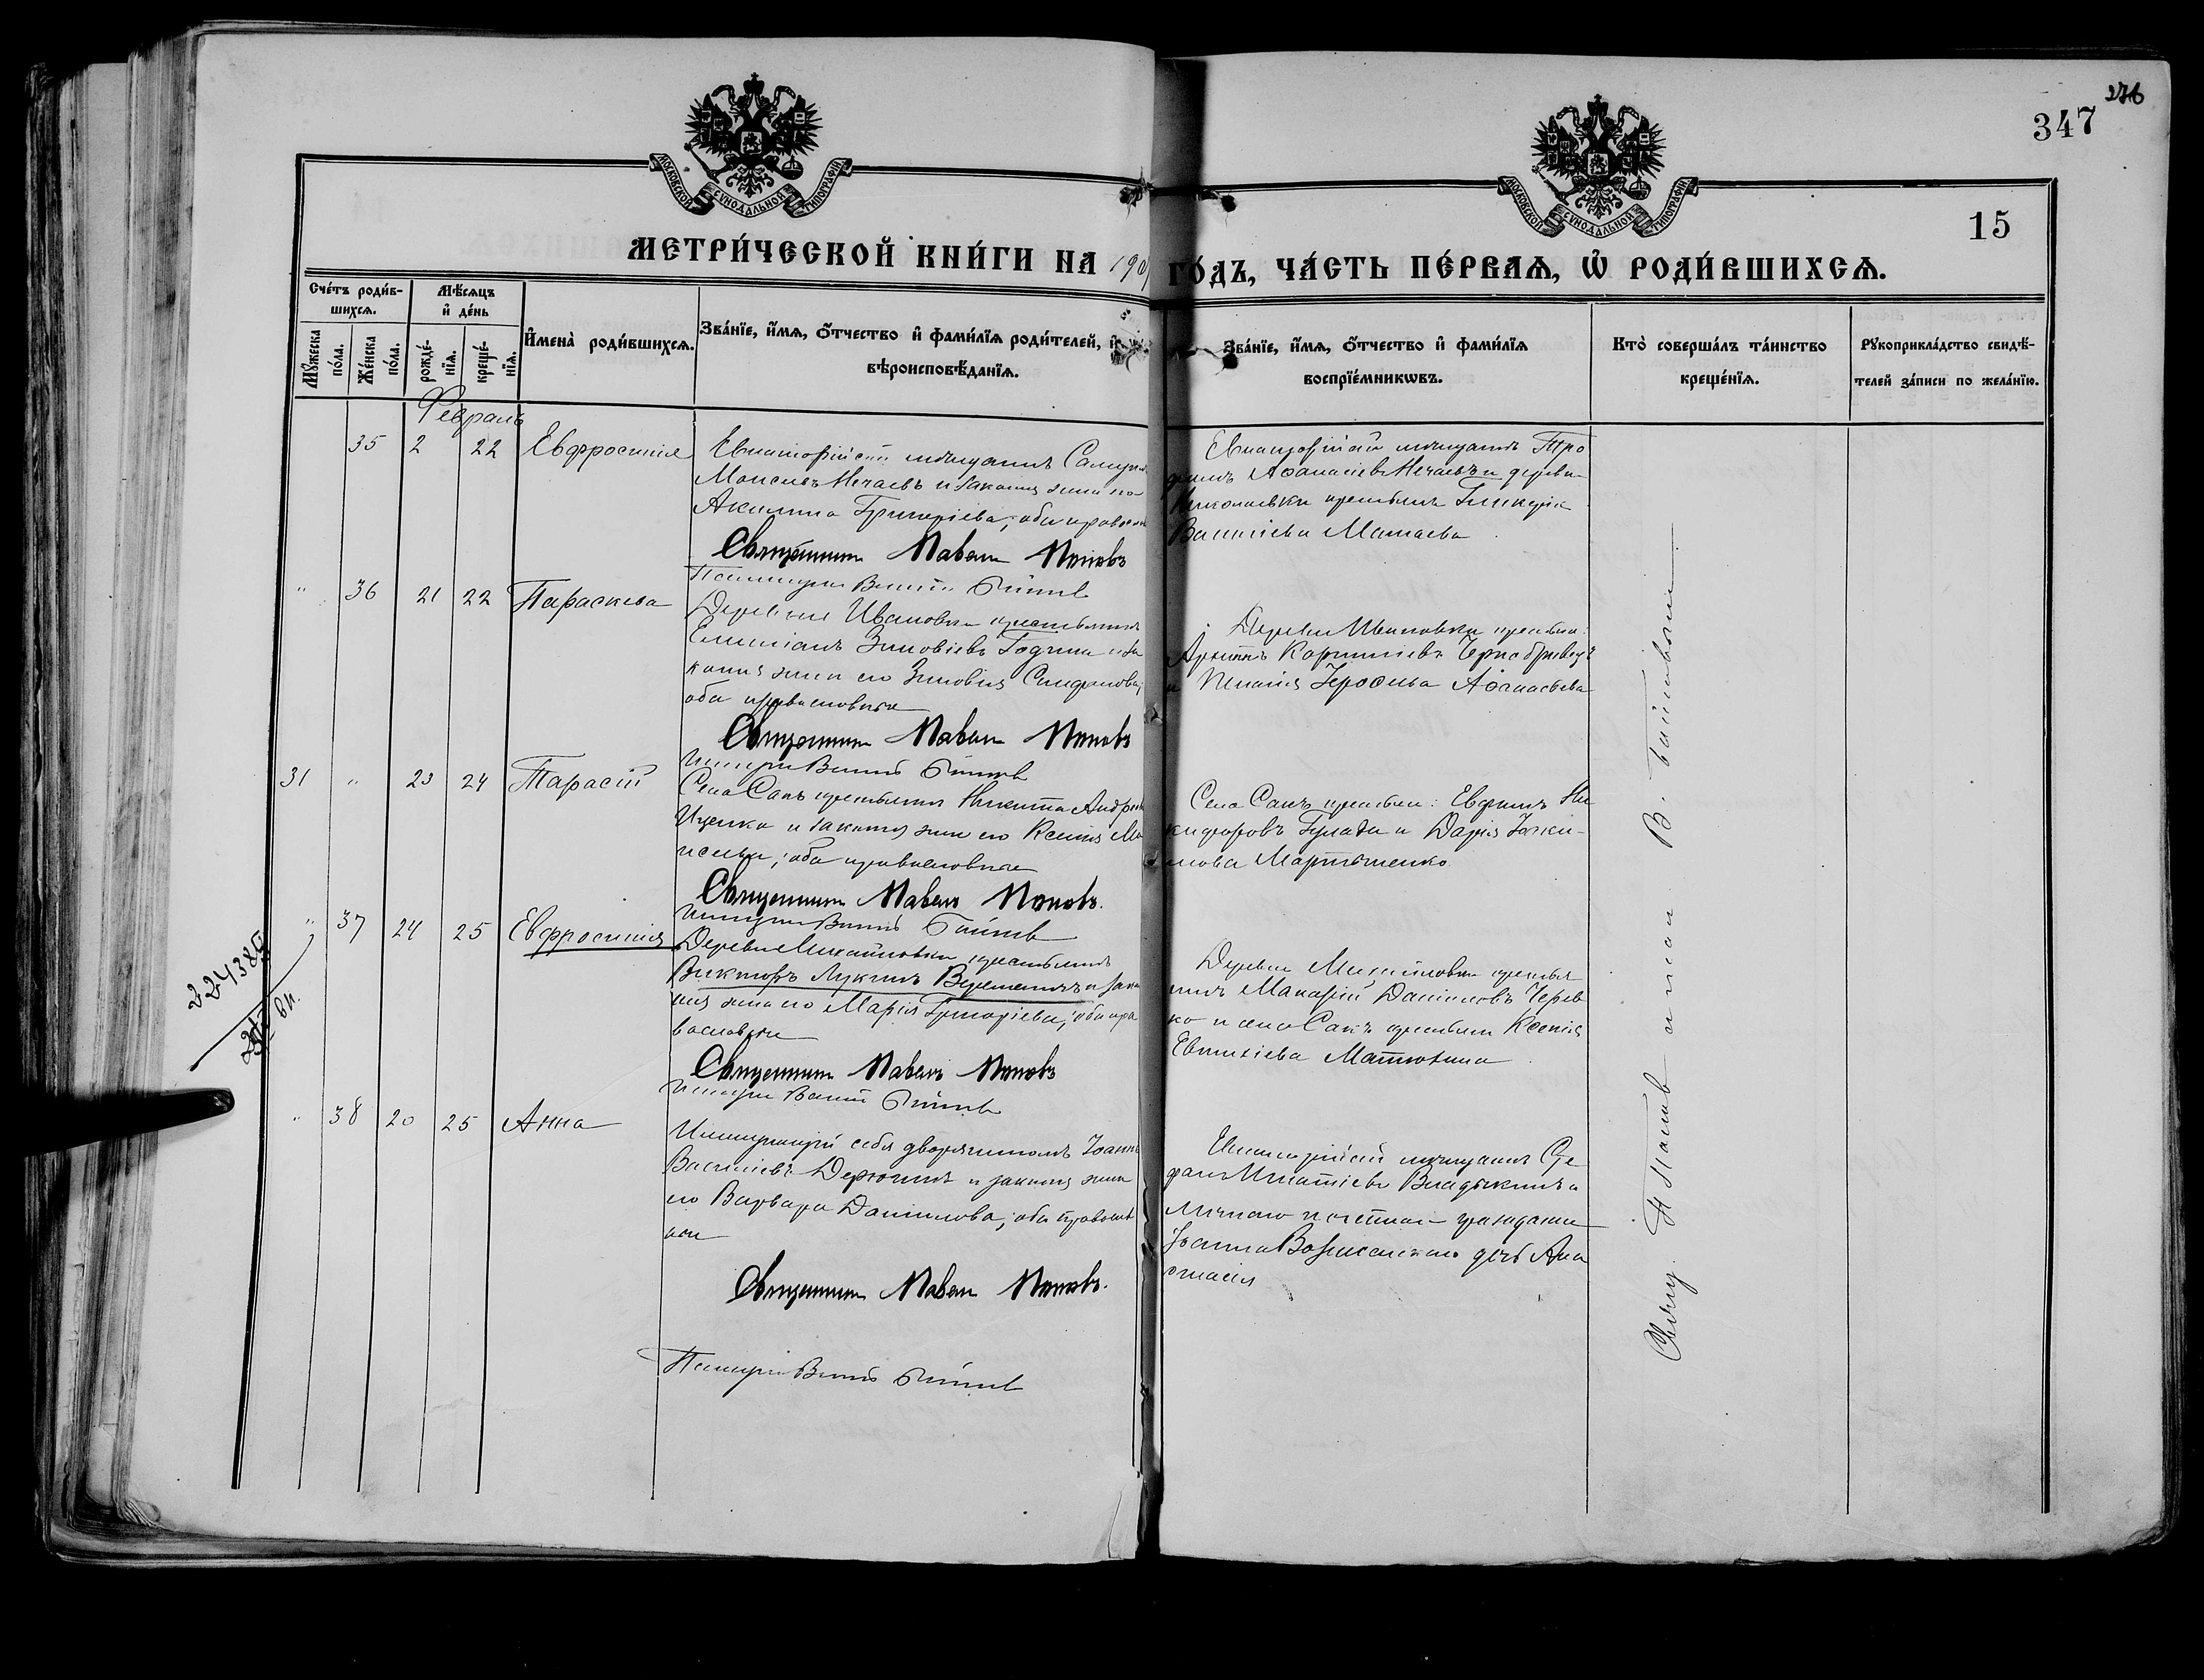 276
347
15
МОСКОВСКОЙ СѴНОДАЛЬНОЙ ТИПОГРАФІИ
МОСКОВСКОЙ СѴНОДАЛЬНОЙ ТИПОГРАФІИ
МЕТРИ́ЧЕСКОЙ КНИ́ГИ НА 190
ГО́ДЪ, ЧА́СТЬ ПЕ́РВАѦ, Ѡ҆ РОДИ́ВШИХСѦ.
Сче́тъ роди́в-
шихсѧ.
Мꙋ́жеска по́ла.
Же́нска по́ла.
Мѣ́сѧцъ
и҆ де́нь
рожде́-нїѧ.
креще́-нїѧ.
И҆мена̀ роди́вшихсѧ.
Зва́нїе, и҆́мѧ, ѻ҆́тчество и҆ фами́лїѧ роди́телей, и҆
вѣроисповѣ́данїѧ.
Зва́нїе, и҆́мѧ, ѻ҆́тчество и҆ фами́лїѧ
воспрїе́мникѡвъ.
Кто̀ соверша́лъ та́инство
креще́нїѧ.
Рꙋкоприкла́дство свидѣ́-
телей за́писи по жела́нїю.
Февраль
35 2 22 Евфросинія
Евпаторійскій мѣщанинъ Самуил
Моисеевъ Нечаевъ и законная жена его
Акилина Григоріева; оба православ
Священникъ Павелъ Поповъ
Евпаторійскій мѣщанинъ Тро
фимъ Аѳанасіевъ Нечаевъ и деревни
Николаевки крестьянка Гликерія
Василіева Мамаева
" 36 21 22 Параскева
Деревни Ивановки крестьянинъ
Емиліанъ Зиновіевъ Година и за
конная жена его Зиновія Стефанова,
оба православные
Священникъ Павелъ Поповъ
Деревни Ивановки крестьян:
Архипъ Корниліевъ Чернобривецъ
и Пелагія Іероѳеева Аѳанасьева
31 " 23 24 Тарасій
Села Сакъ крестьянинъ Никита Андреев
Иценко и законная жена его Ксенія Мо
исеева; оба православные
Священникъ Павелъ Поповъ.
Села Сакъ крестьян: Евфимъ Ни
кифоровъ Гулава и Дарія Іоаки-
мова Мартыненко
" 37 24 25 Евфросинія
Деревни Михайловки крестьянинъ
Викторъ Лукинъ Веременичъ и закон
ная жена его Марія Григоріева; оба пра
вославные
Священникъ Павелъ Поповъ
Деревни Михайловки крестья
нинъ Макарій Даніиловъ Черев
ко и села Сакъ крестьянка Ксенія
Евтихіева Матюхина
" 38 20 25 Анна
Именующій себя дворяниномъ Іоаннъ
Василіевъ Дерюгинъ и законная жена
его Варвара Даніилова; оба православ
ные
Священникъ Павелъ Поповъ.
Евпаторійскій мѣщанинъ Сте
фанъ Игнатіевъ Владыкинъ и
личнаго почетнаго гражданина
Іоанна Вознесенскаго дочь Ана
стасія
Свящ. П. Поповъ и псал. В.